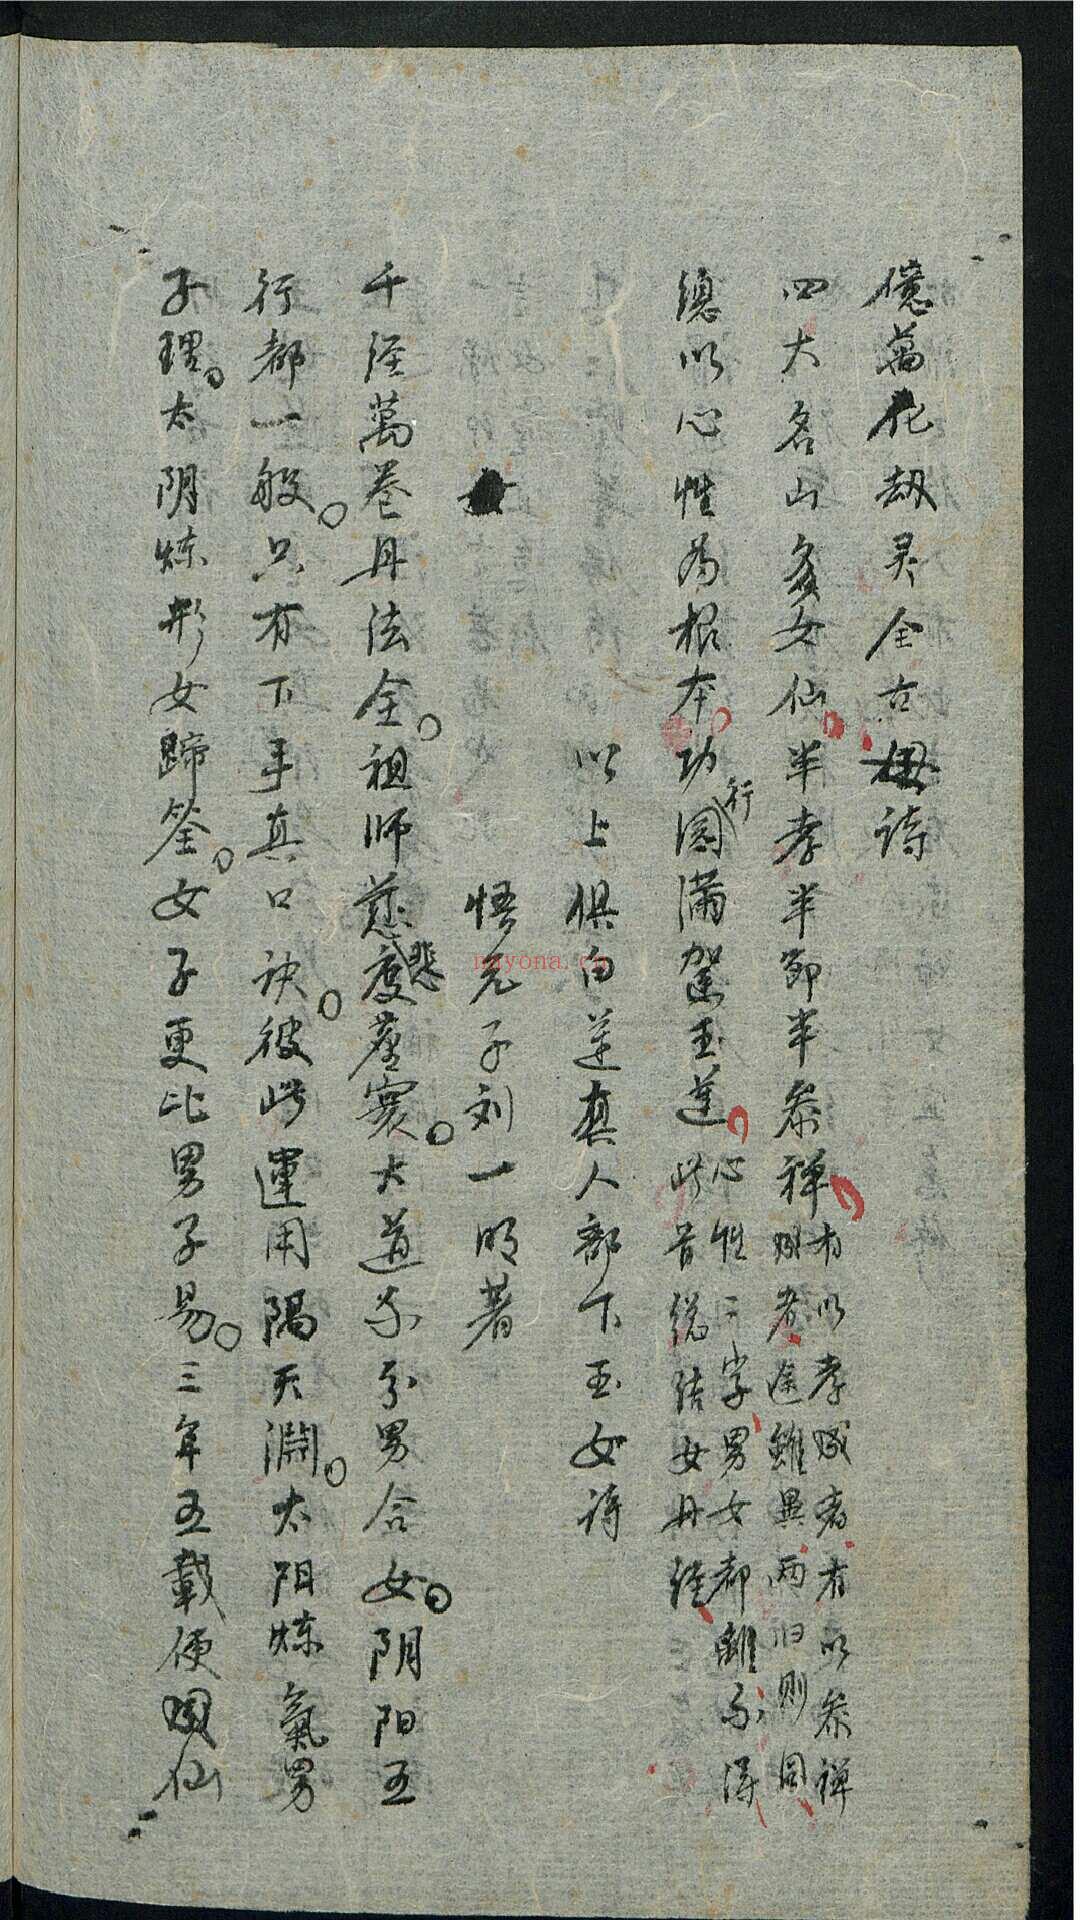 億萬花劫灵全古母詩
四大名山多女仙半孝半節半叅禅有以孝成者有以叅禅
成者途雖異而归则同
總以心性為根本功行圓滿駕玉蓮心性二字男女都離不得
此首總结女丹經
以上俱白蓮真人部下玉女詩
悟元子刘一明著
千經萬卷丹法全祖师慈悲度塵寰大道不分男合女阴阳五
行都一般只有下手真口诀彼此運用隔天淵太阳炼氣男
子理太阴炼形女蹄筌女子更比男子易三年五載便成仙
nayona.cn